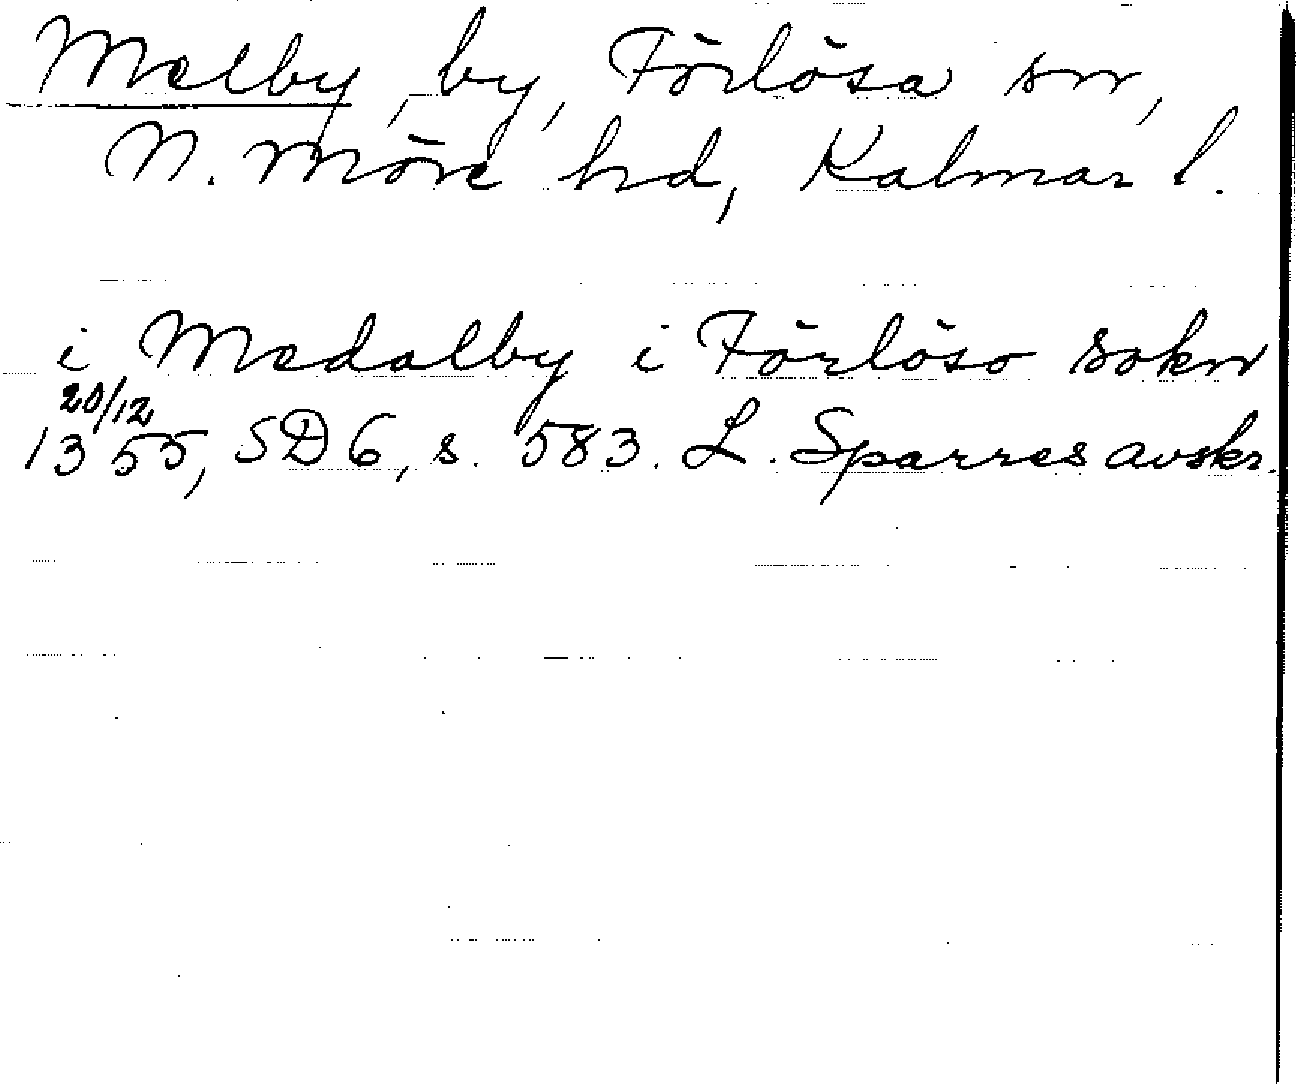 Melby, by, Förlösa sn,
N. Möre hd, Kalmar l.
i Medalby i Förlöso sokn
20/12
1355, SD 6, s. 583. L. Sparres avskr.